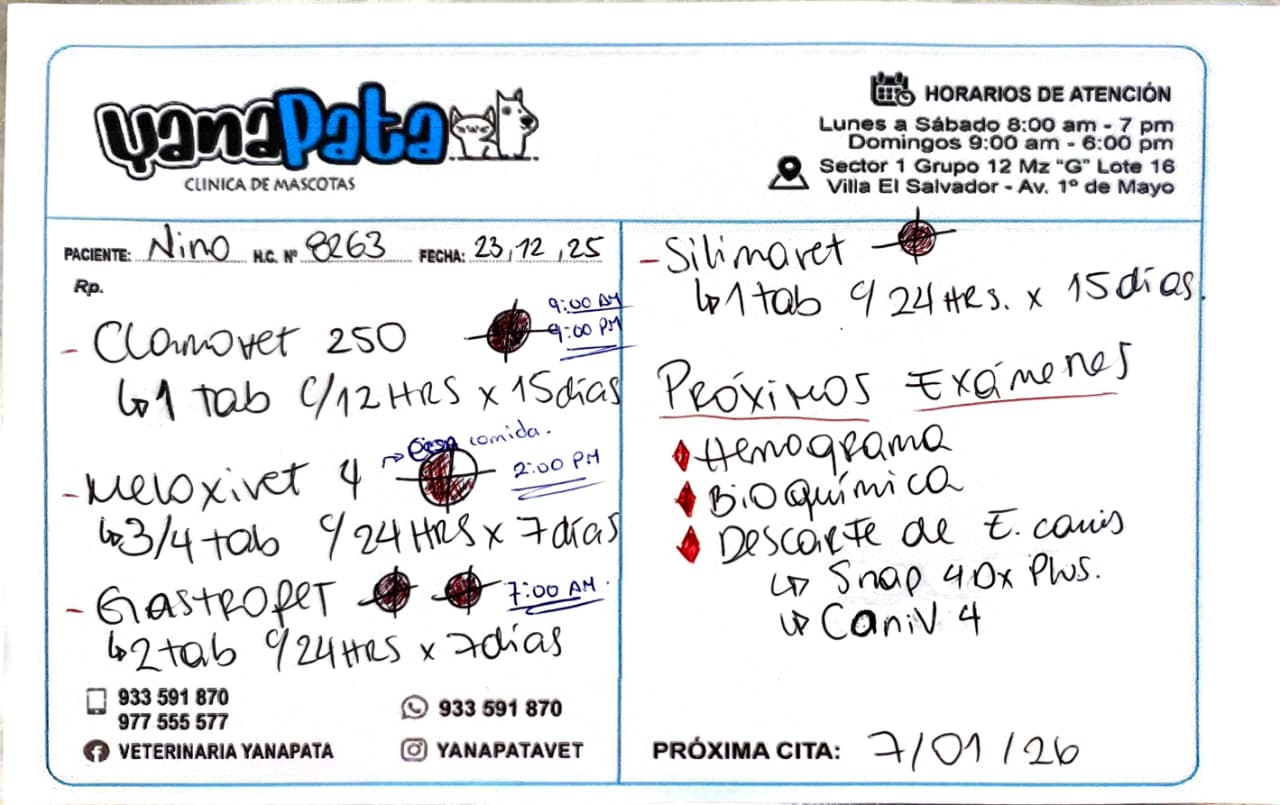 yanapata
CLINICA DE MASCOTAS
HORARIOS DE ATENCIÓN
Lunes a Sábado 8:00 am - 7 pm
Domingos 9:00 am - 6:00 pm
Sector 1 Grupo 12 Mz "G" Lote 16
Villa El Salvador - Av. 1º de Mayo
PACIENTE: Nino H.C. Nº 8263 FECHA: 23,12,25
Rp.
- Clamovet 250
9:00 AM
9:00 PM
↳1 tab c/12 HRS x 15 días
→ comida.
- Meloxivet 4
2:00 PM
↳3/4 tab c/24 HRS x 7 días
- GASTROPET 7:00 AM.
↳2 tab c/24 HRS x 7 días
933 591 870
977 555 577
933 591 870
VETERINARIA YANAPATA
YANAPATAVET
- Silimavet
↳1 tab c/24 HRS. x 15 días.
PRÓXIMOS EXÁMENES
♦ Hemograma
♦ BiOquímica
♦ DESCARTE de E. canis
↳ Snap 4Dx Plus.
↳ CaniV 4
PRÓXIMA CITA: 7/01/26